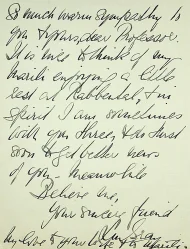 So much warm sympathy to
you & yours, dear Professor.
It is nice to think of my
enjoying a little
rest at Rabbental, & in
Spirit I am sometimes
with you three, & do trust
soon to get better news
of you – meanwhile
Believe me,
Your sincere friend
my love to your